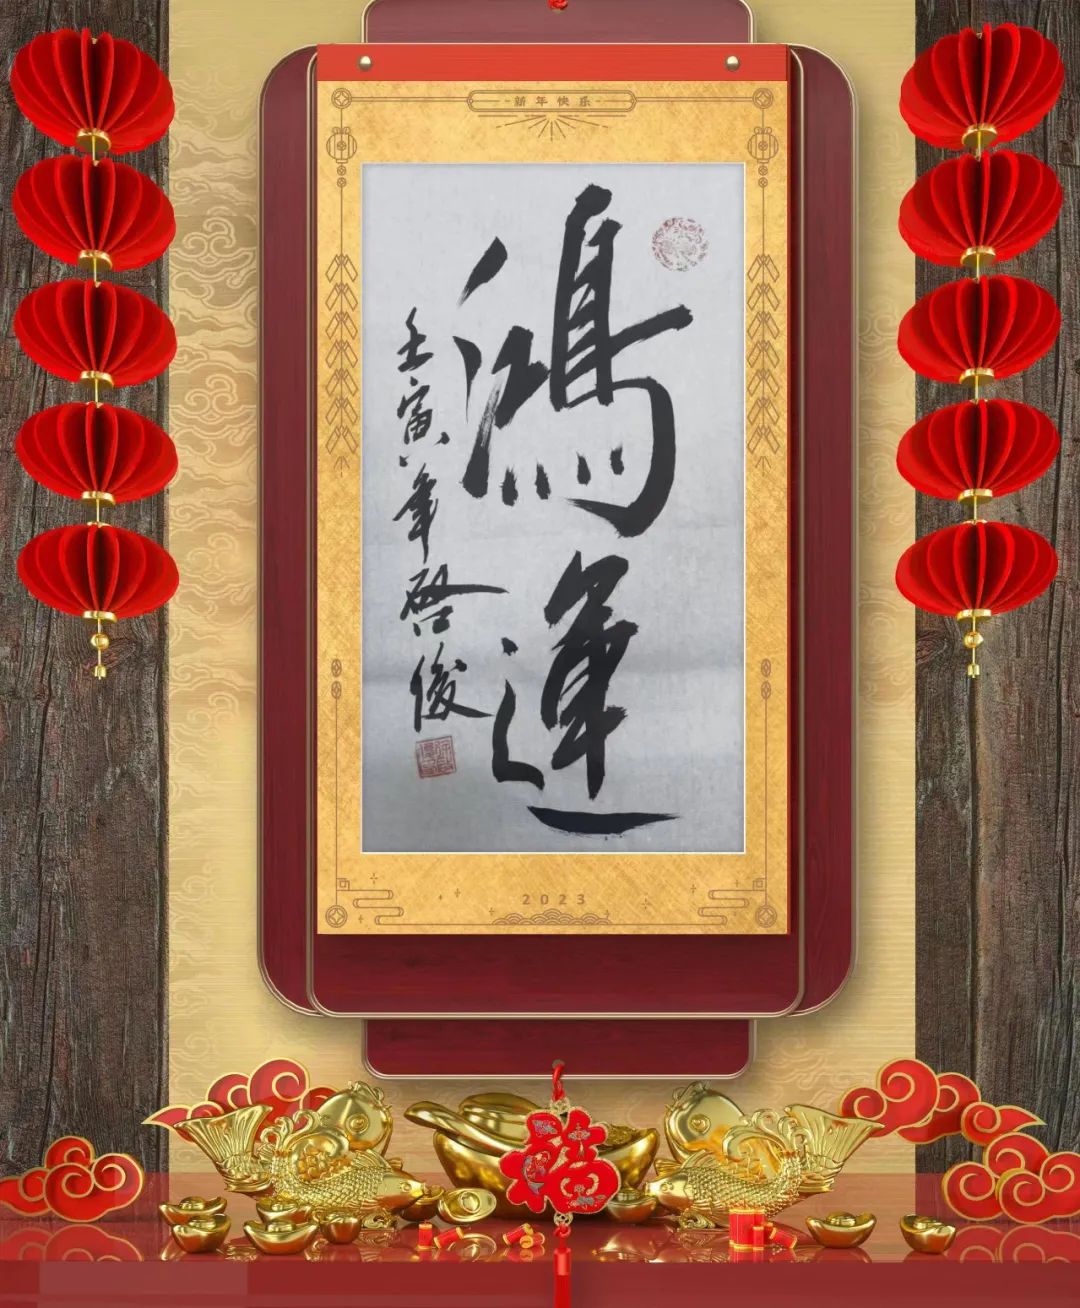 新年快乐
鴻運
壬寅年啓俊
2023
福